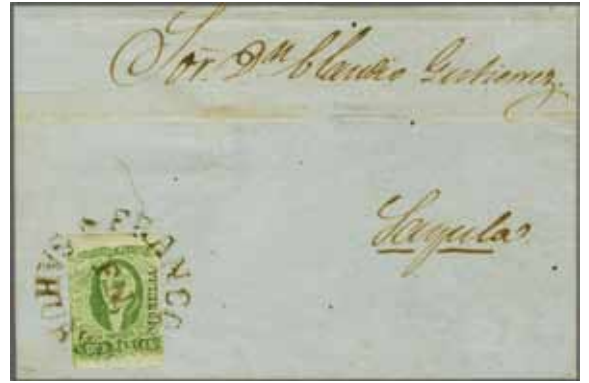 Sor. Dn Claudio Gutierrez.
Sayula.
FRANCO
MORELIA